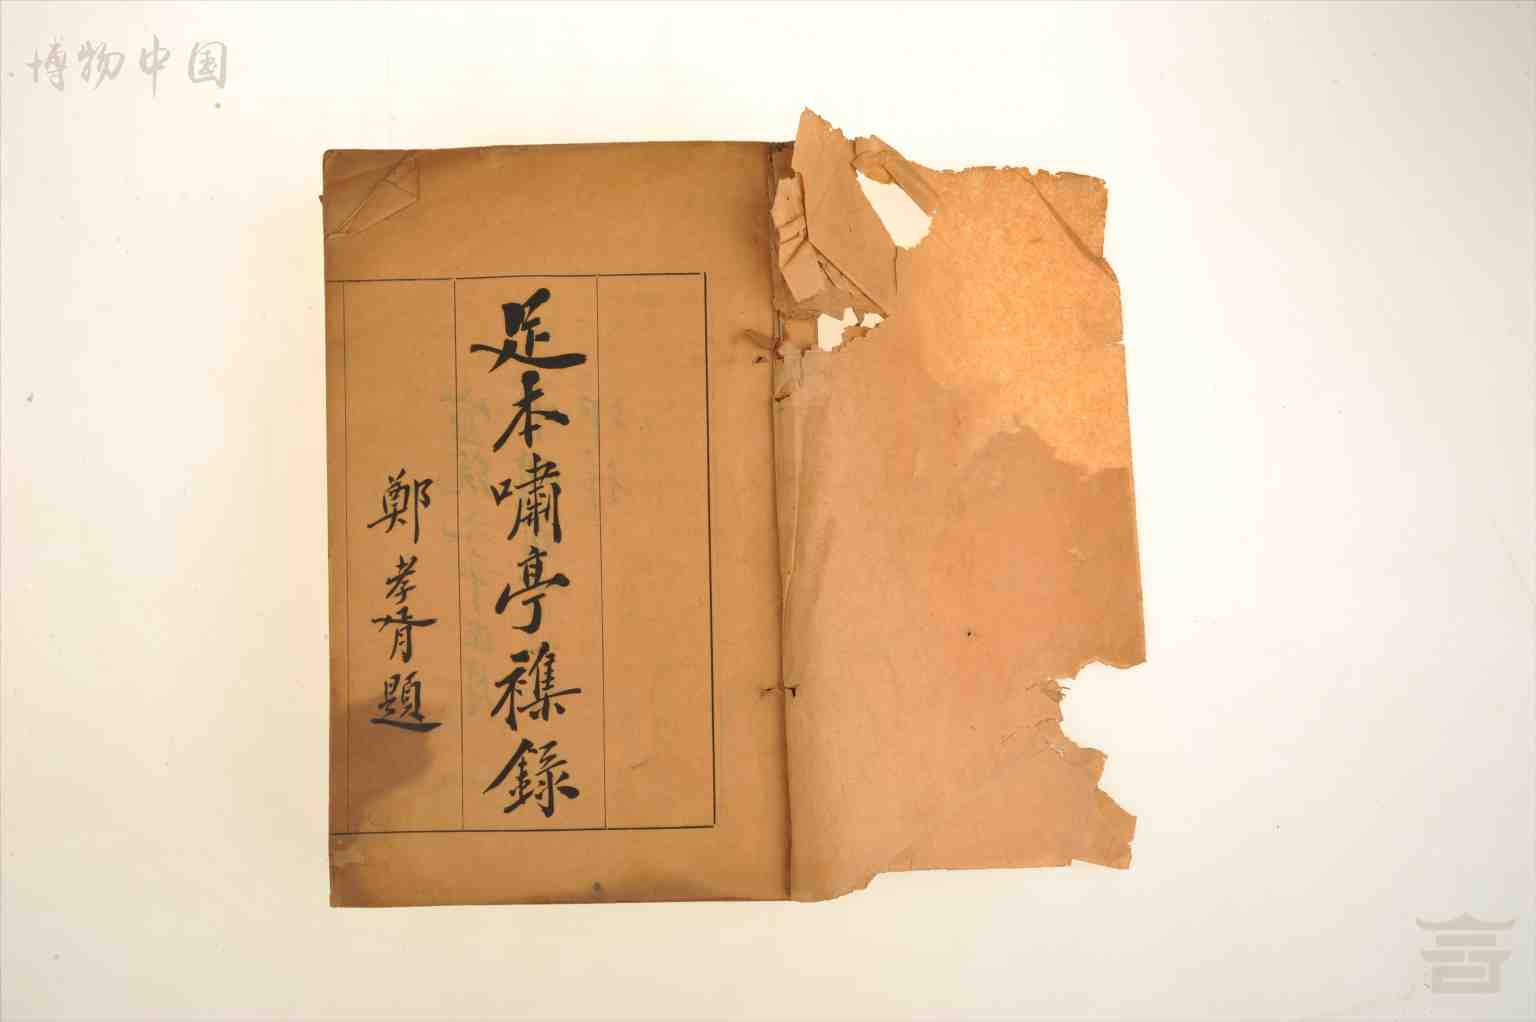 博物中国
足本嘯亭襍錄
鄭孝胥題